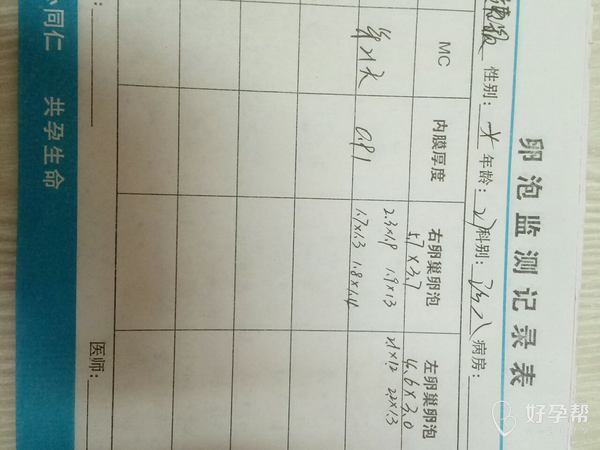 卵泡监测记录表
性别：女 年龄：27 科别： 病房：
MC 内膜厚度 右卵巢卵泡 左卵巢卵泡
5.7×3.7 4.6×3.0
2.3×1.9 1.9×1.3 2.1×1.2 2.2×1.3
第21天 0.91 1.7×1.3 1.8×1.4
医师：
心同仁 共孕生命
好孕帮